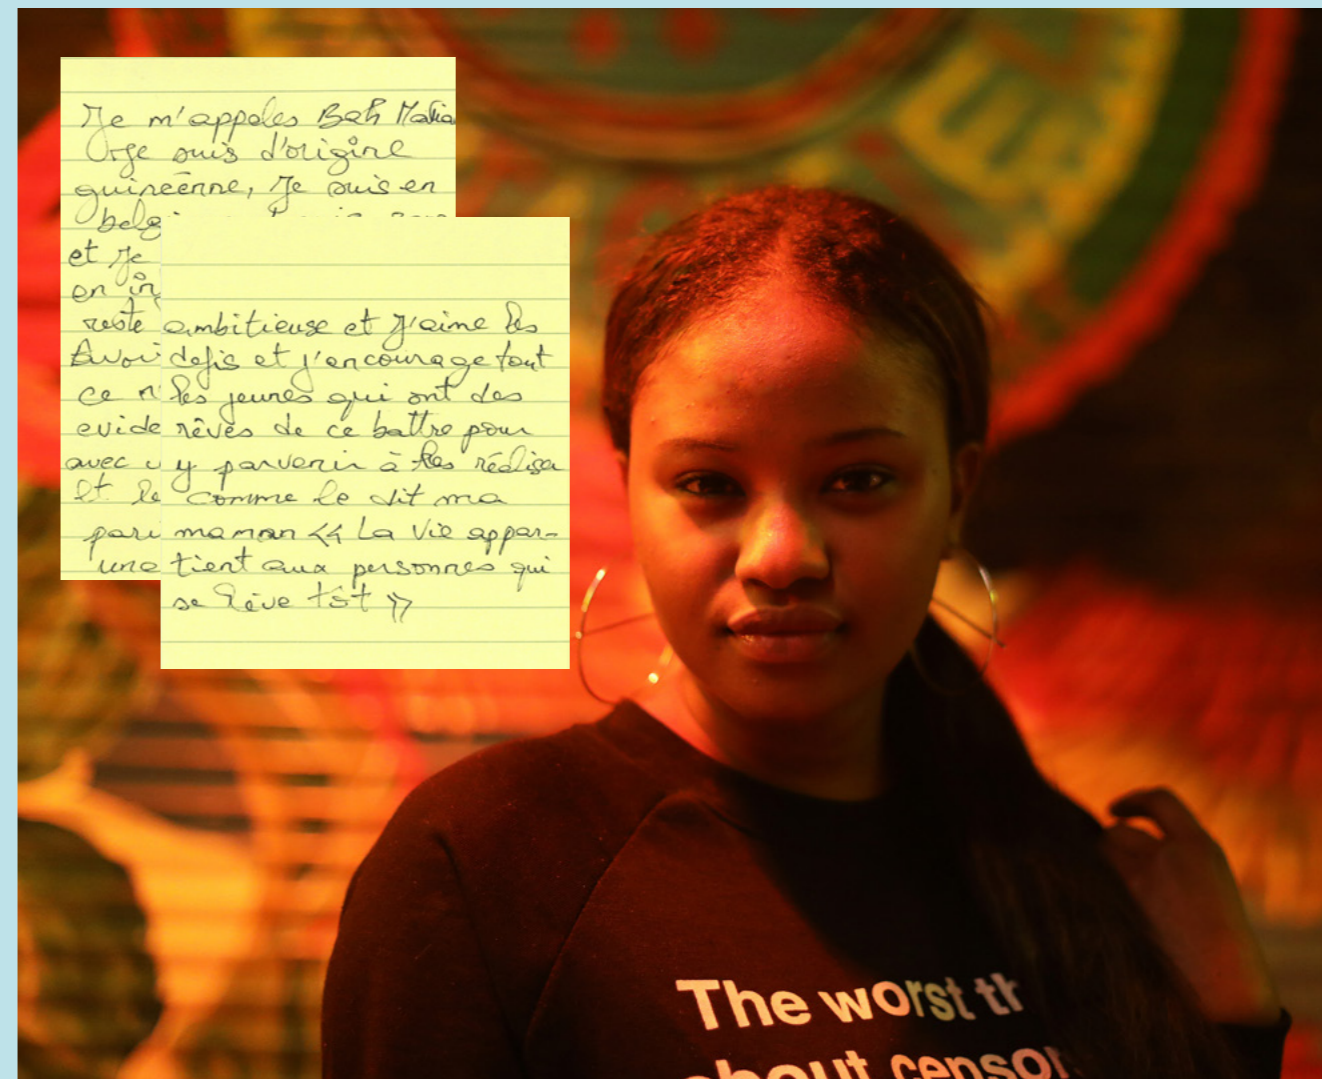 Je m'appeles Bah Maria
Je suis d'origine
guinéenne, Je suis en
belg
et Je
en in
reste
Avoi
ce n'
evide
avec u
Et le
pari
une
ambitieuse et J'aime les
defis et j'encourage tout
les jeunes qui ont des
rêves de ce battre pour
y parvenir à les réaliser
comme le dit ma
maman << La Vie appar-
tient aux personnes qui
se lève tôt >>
The worst th
about censor